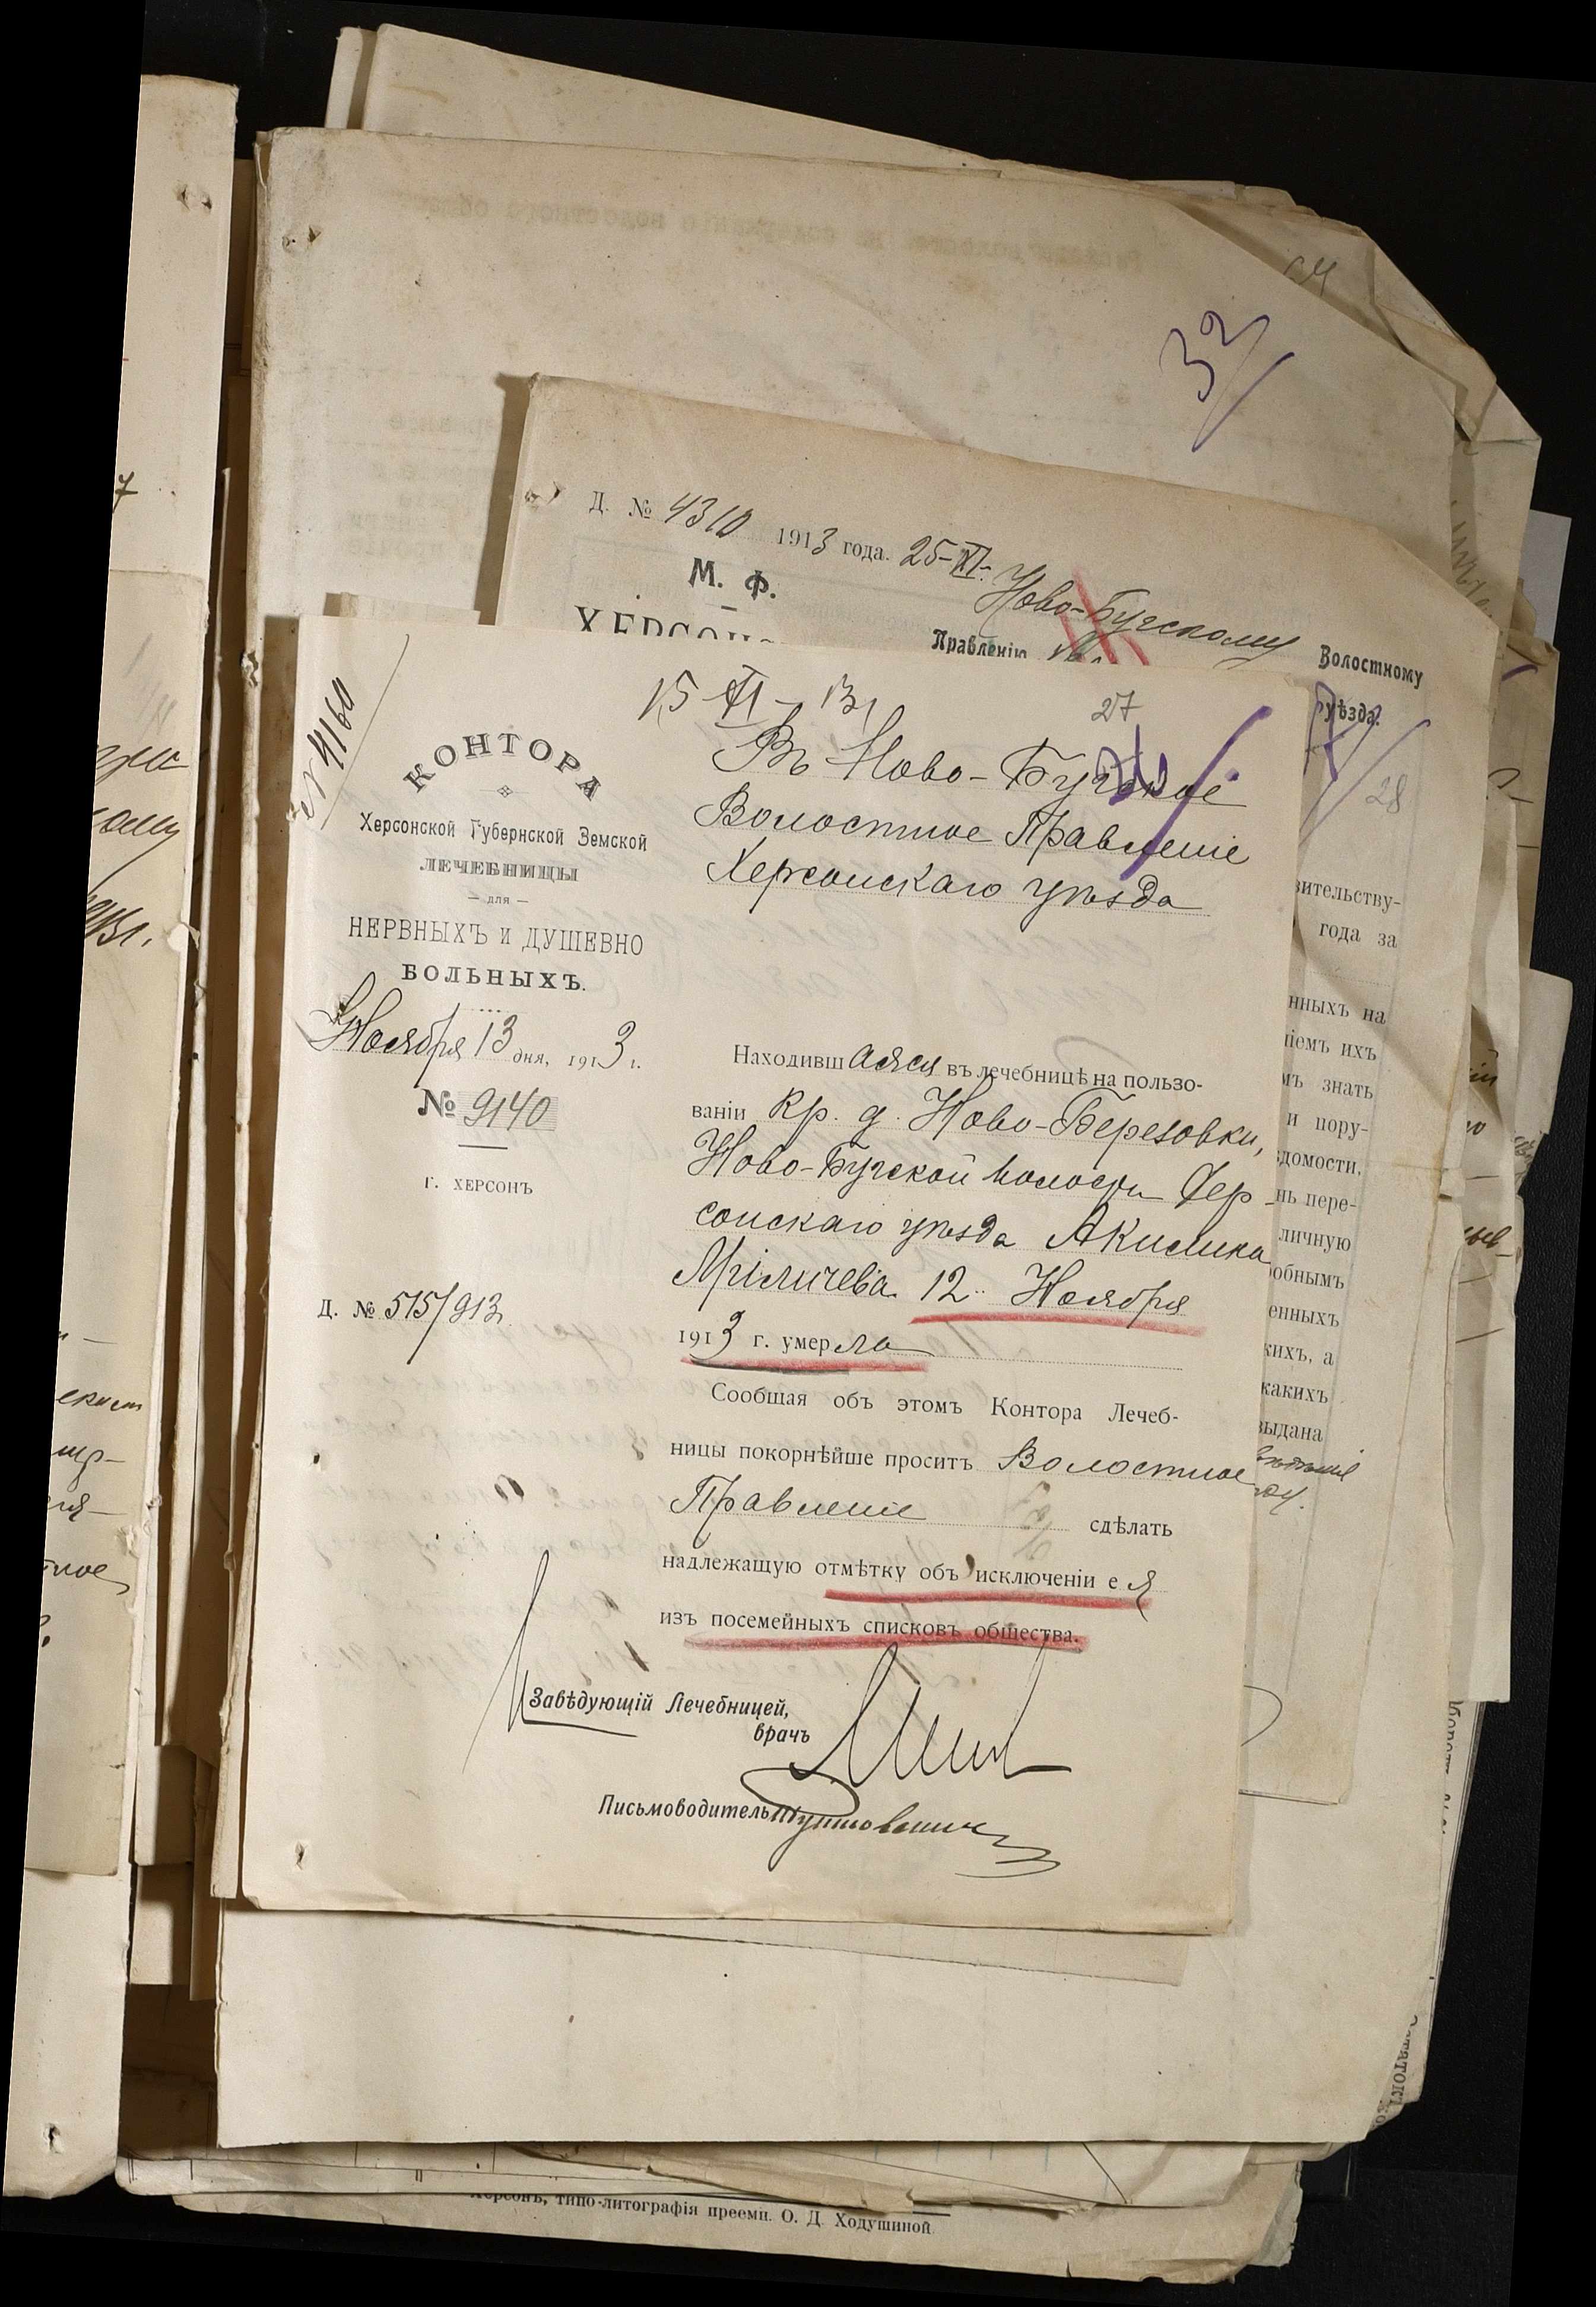 32
Д. № 4310 1913 года. 25-XI-
М. Ф.
Ново-Бугскому Волостному
Правленію
уѣзда.
28
вительству-
года за
нныхъ на
ніемъ ихъ
мъ знать
и пору-
домости,
нь пере-
личную
обнымъ
енныхъ
кихъ, а
какихъ
выдана
№ 4160
15-XI-13
27
КОНТОРА
Херсонской Губернской Земской
ЛЕЧЕБНИЦЫ
— для —
НЕРВНЫХЪ И ДУШЕВНО
БОЛЬНЫХЪ.
Ноября 13 дня, 1913 г.
№ 9140
г. ХЕРСОНЪ
Д. № 515/913
Въ Ново-Бугское
Волостное Правленіе
Херсонскаго уѣзда
Находившаяся въ лечебницѣ на пользо-
ваніи кр. д. Ново-Березовки,
Ново-Бугской волости Хер-
сонскаго уѣзда Акилина
12 Ноября
1913 г. умерла
Сообщая объ этомъ Контора Лечеб-
ницы покорнѣйше проситъ Волостное
Правленіе сдѣлать
надлежащую отмѣтку объ исключеніи ея
изъ посемейныхъ списковъ общества.
Завѣдующій Лечебницей,
врачъ
Письмоводитель
Херсонъ, типо-литографія преемн. О. Д. Ходушиной.